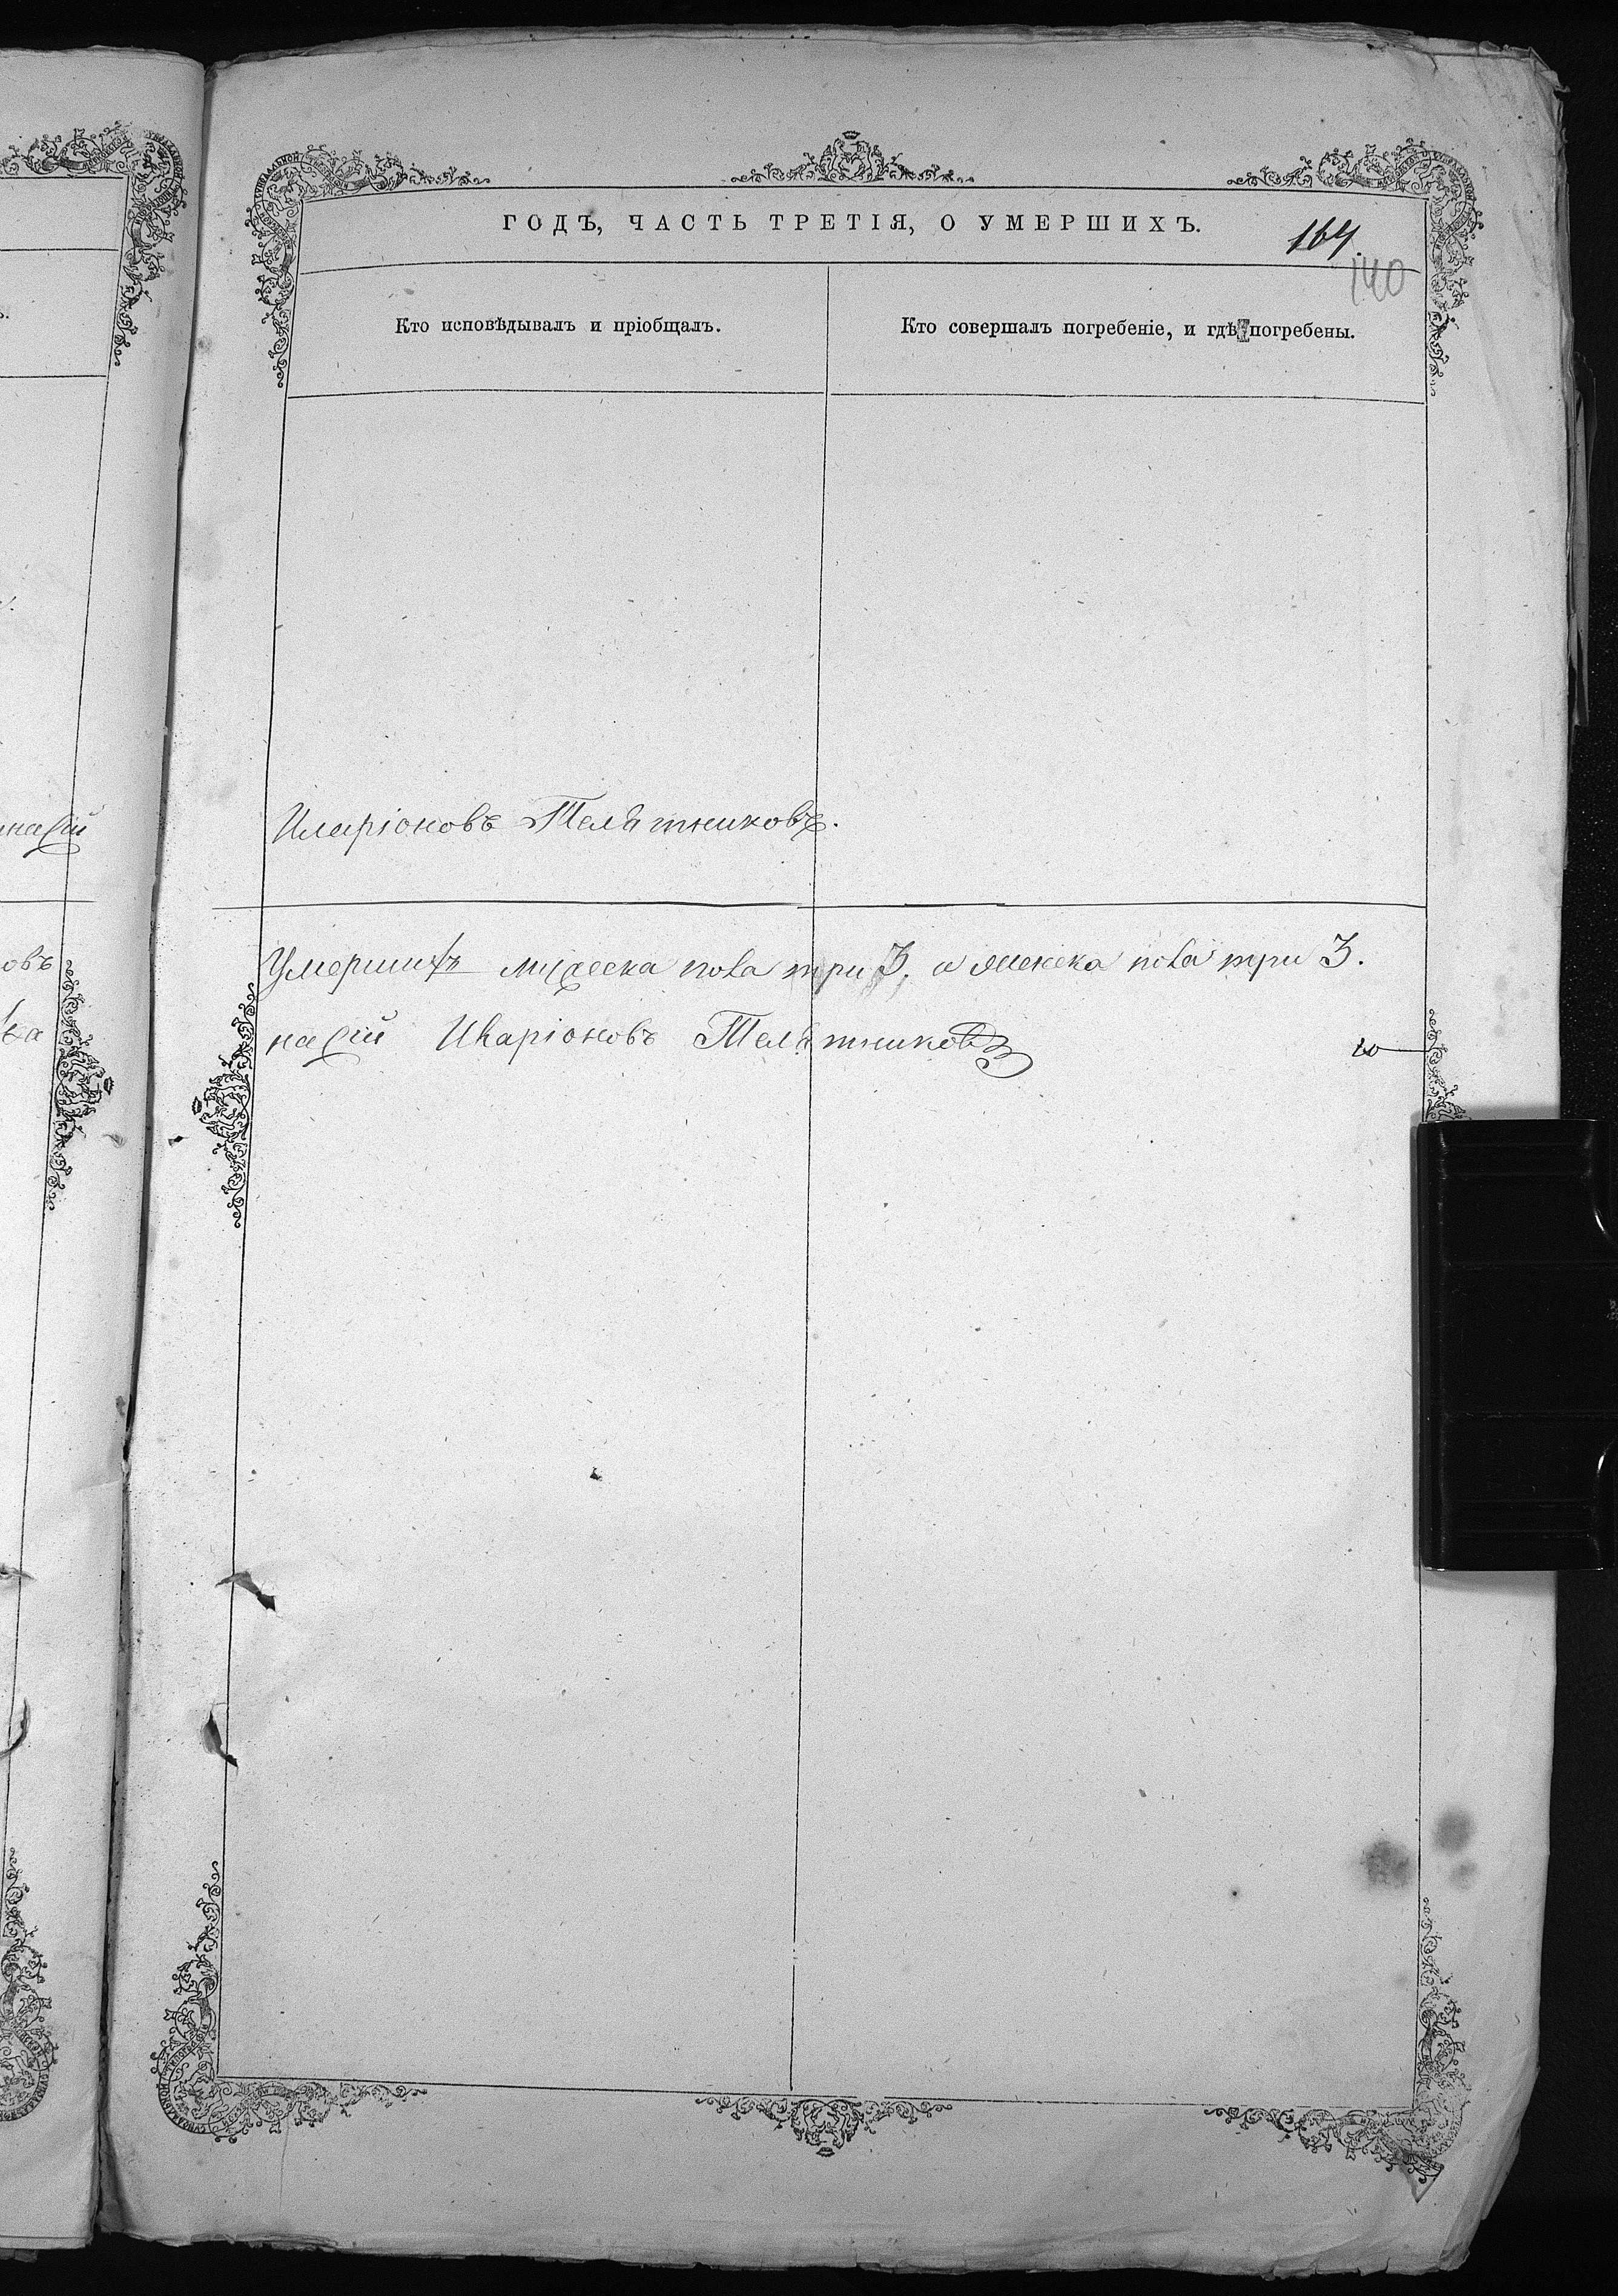 ГОДЪ, ЧАСТЬ ТРЕТІЯ, О УМЕРШИХЪ.
164.
140
Кто исповѣдывалъ и пріобщалъ.
Кто совершалъ погребеніе, и гдѣ погребены.
Иларіоновъ Телятниковъ.
Умершихъ мужеска пола три 3. и женска пола три 3.
насій Иларіоновъ Телятниковъ
овъ